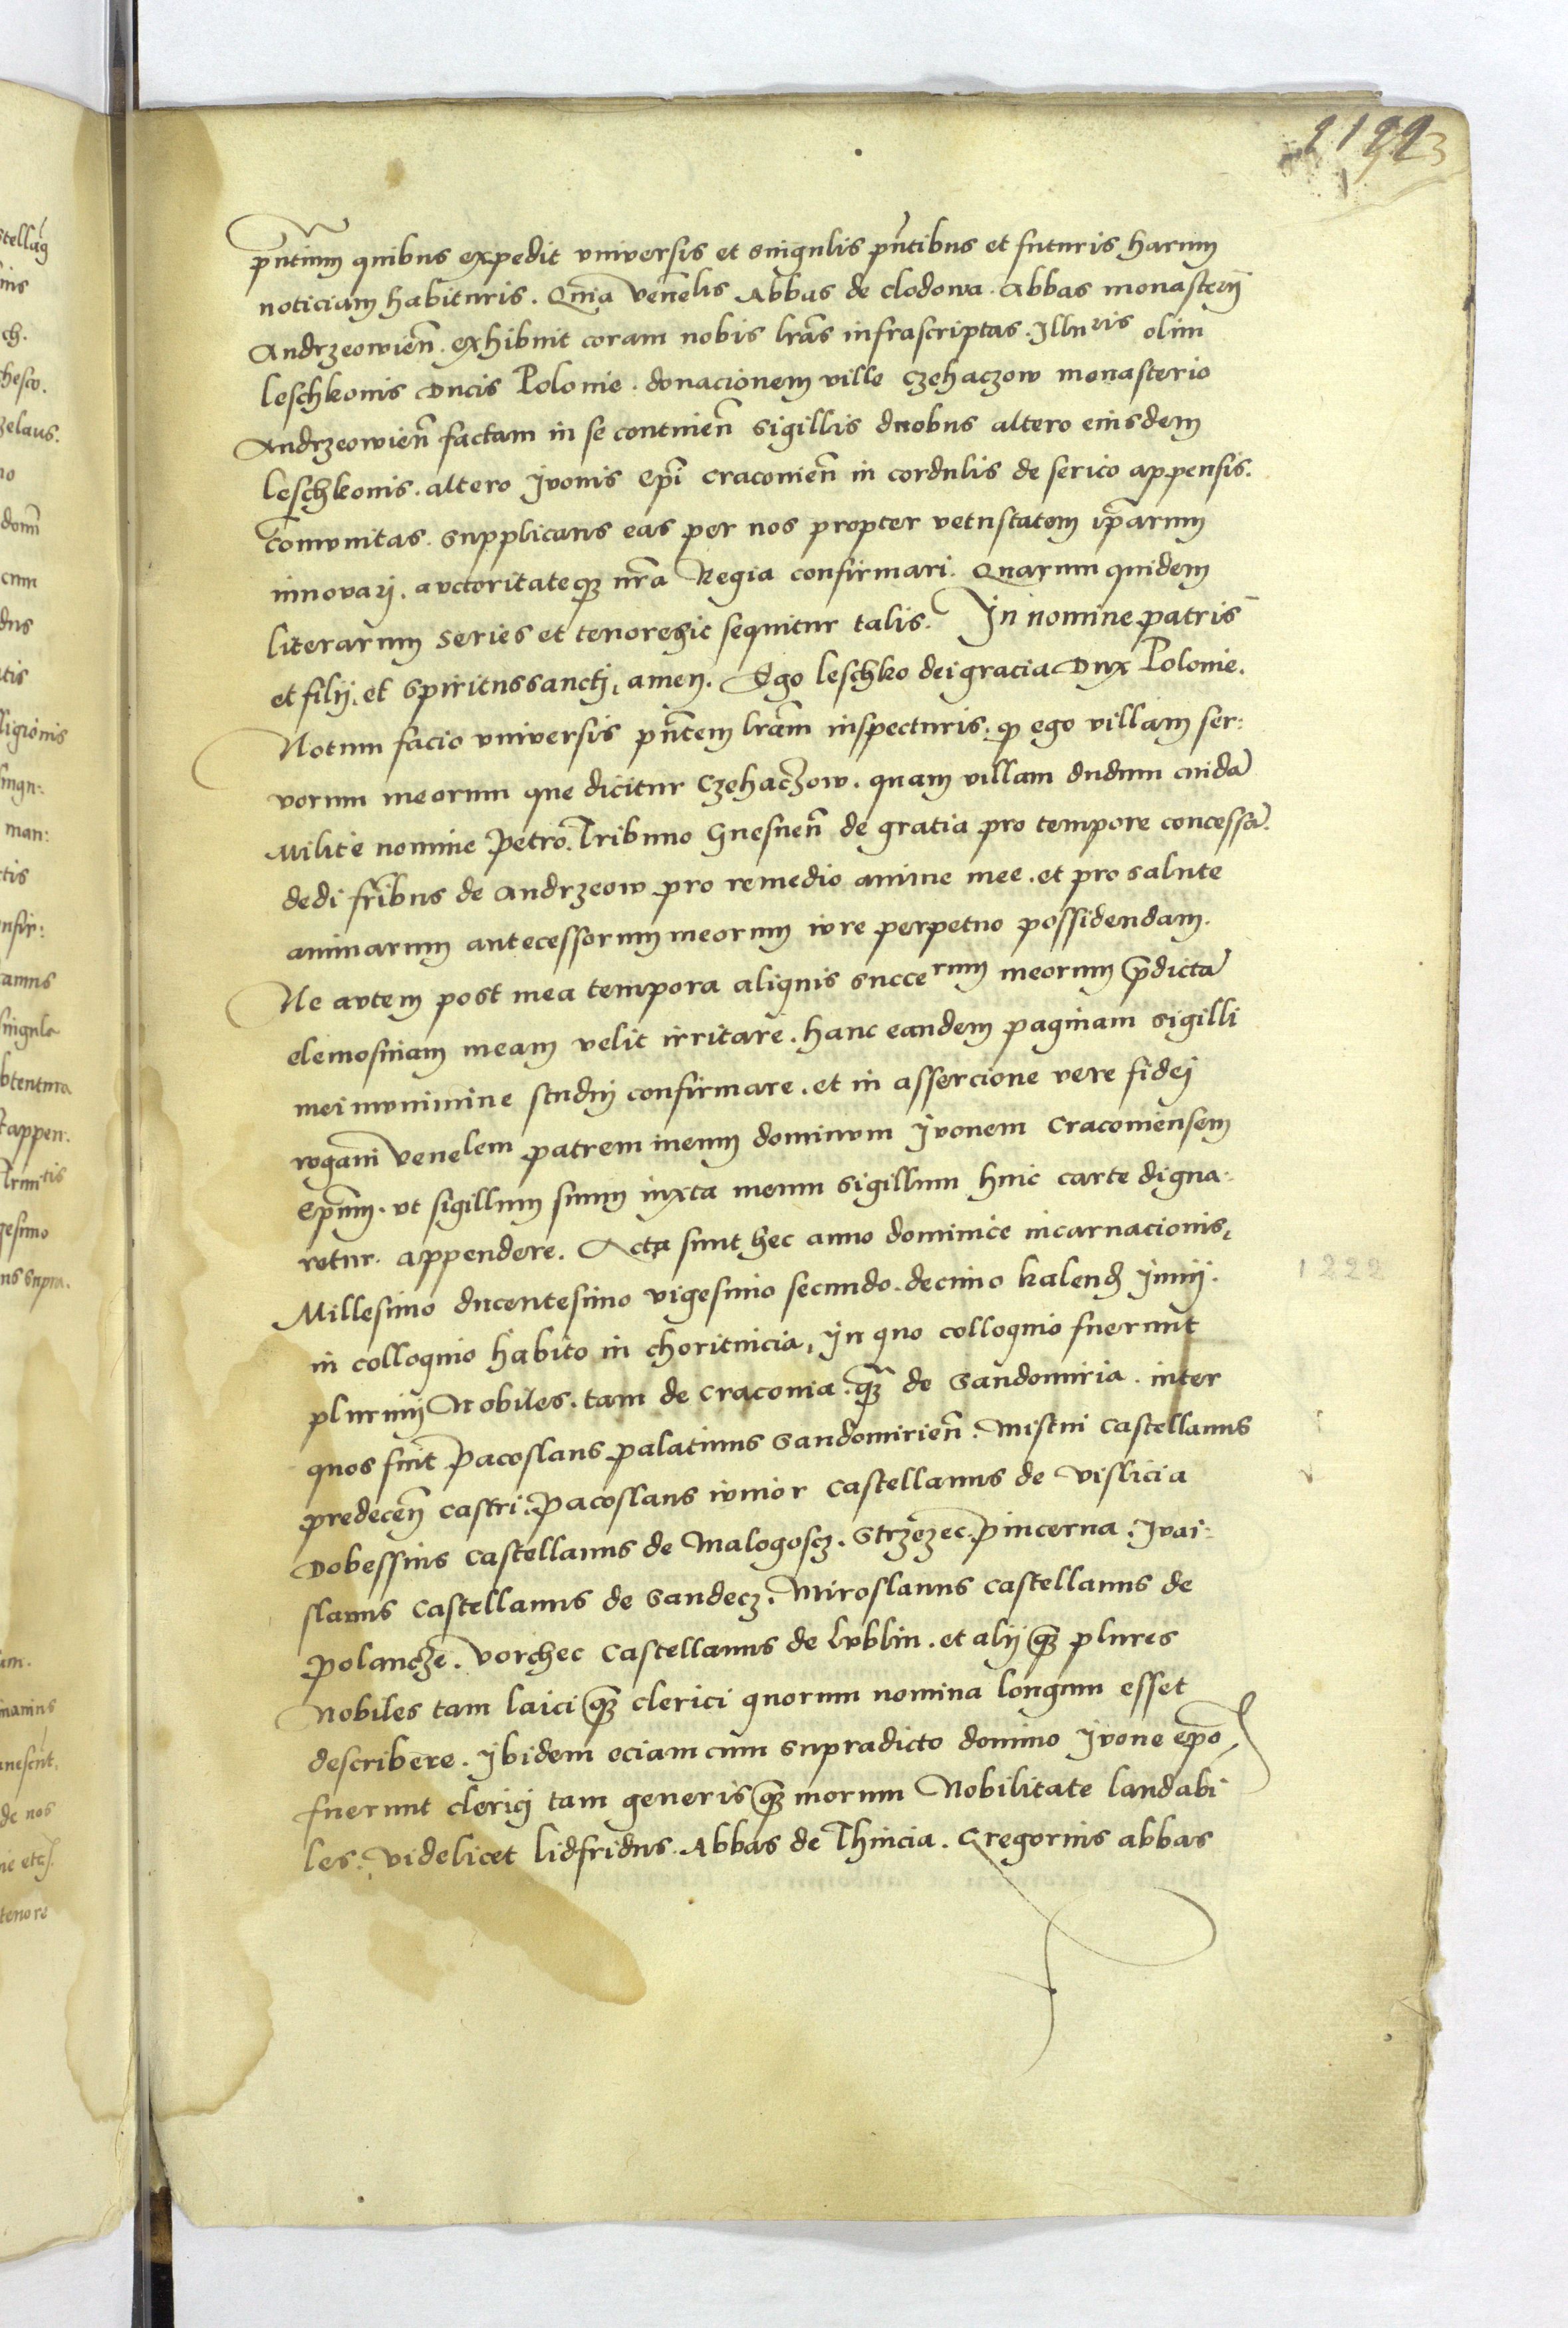 pn̄tium quibus expedit universis et singulis pn̄tibus et futuris harum
noticiam habituris. Quia Venelis Abbas de clodowa. Abbas monasterij
Andrzeowien̄. exhibuit coram nobis lrās infrascriptas. Illuris olim
leschkonis Ducis Polonie. donacionem ville Czehaczow monasterio
Andrzeowien̄ factam in se continen̄ sigillis duobus altero eiusdem
leschkonis. altero Ivonis epī Cracovien̄ in cordulis de serico appensis.
Comunitas. supplicans eas per nos propter vetustatem ipārum
innovari. auctoritateqȝ nrā Regia confirmari. Quarum quidem
literarum series et tenor sic sequitur talis. In nomine patris
et filij. et Spiritussancti, amen. Ego leschko dei gracia Dux Polonie.
Notum facio universis pn̄tem lrām inspecturis. qȝ ego villam ser:
vorum meorum que dicitur Czehaczow. quam villam dudum cuidā
Milite nomine Petro. Tribuno Gnesnen̄ de gratia pro tempore concessā.
dedi frībus de Andrzeow pro remedio anime mee. et pro salute
animarum antecessorum meorum iure perpetuo possidendam.
Ne autem post mea tempora aliquis succerum meorum p̄dictā
elemosinam meam velit irritare. hanc eandem paginam sigilli
mei munimine studui confirmare. et in assercione vere fidei
rogavi Venelem patrem meum dominum Ivonem Cracoviensem
Ep̄um. ut sigillum suum iuxta meum sigillum huic carte digna:
retur. appendere. Acta sunt hec anno dominice incarnacionis,
Millesimo ducentesimo vigesimo secundo. decimo kalend̄ Junij.
1222
in colloquio habito in choritnicia, In quo colloquio fuerunt
plurimi Nobiles. tam de Cracovia. qȝ de Sandomiria. inter
quos fuit Pacoslaus palatinus Sandomirien̄. Mistui Castellanus
predecen̄ castri. Pacoslaus iunior Castellanus de Vislicia
Dobessius Castellanus de Malogoscz. Strzezec. pincerna. Ivai:
slaus Castellanus de Sandecz. Miroslaus castellanus de
Polancze. Vorchec Castellanus de Lublin. et alij qȝ plures
Nobiles tam laici qȝ clerici quorum nomina longum esset
describere. Ibidem eciam cum supradicto domino Ivone ep̄o
fuerunt clerici tam generis qȝ morum Nobilitate laudabi
les. videlicet lidfridus. Abbas de Thincia. Gregorius abbas